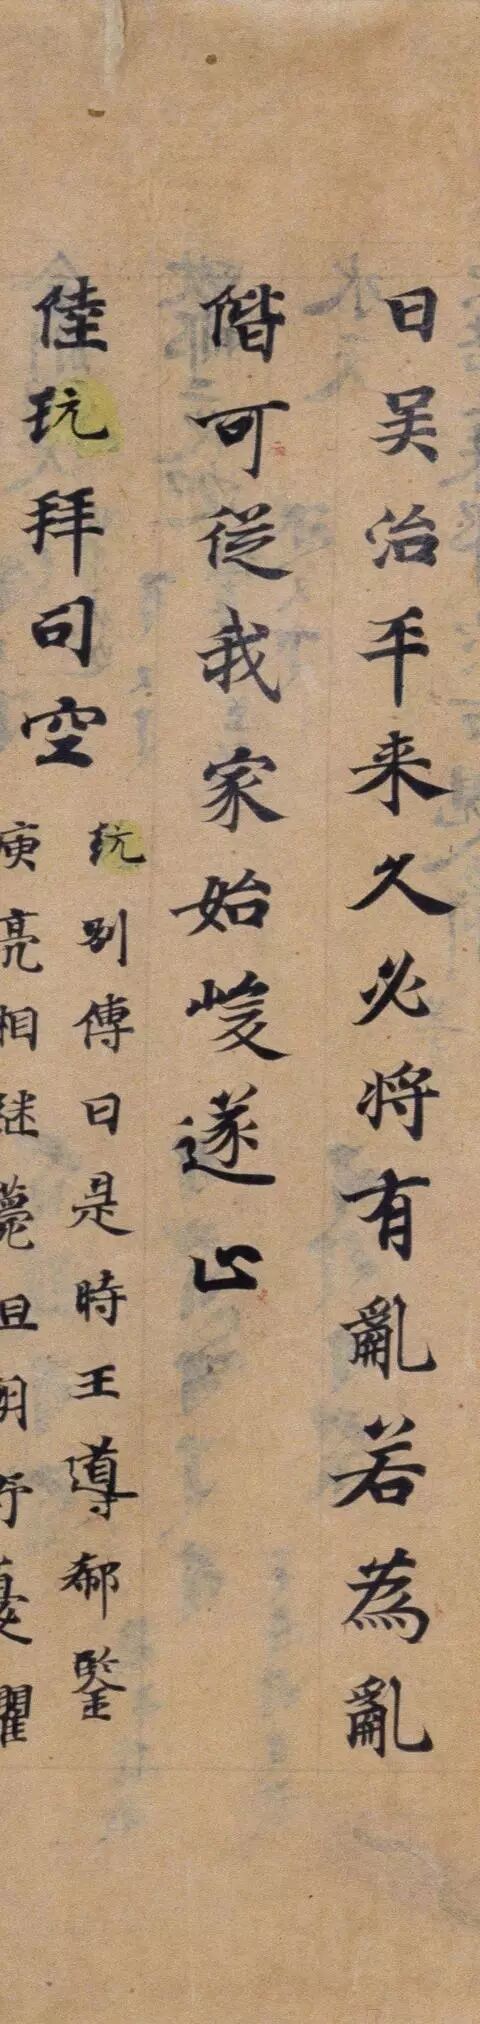 曰吴治平来久必将有亂若為亂
階可從我家始峻遂止
陸玩拜司空
玩別傳曰是時王導郗鑒
庾亮相継薨俎朝野憂懼